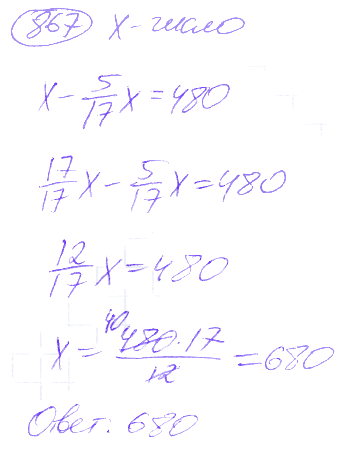 867 x - число
x - 5/17 x = 480
17/17 x - 5/17 x = 480
12/17 x = 480
x = 40 480 · 17 / 12 = 680
Ответ: 680